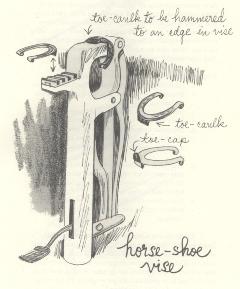 toe-caulk to be hammered
to an edge in vise
toe-caulk
toe-cap
horse-shoe
vise